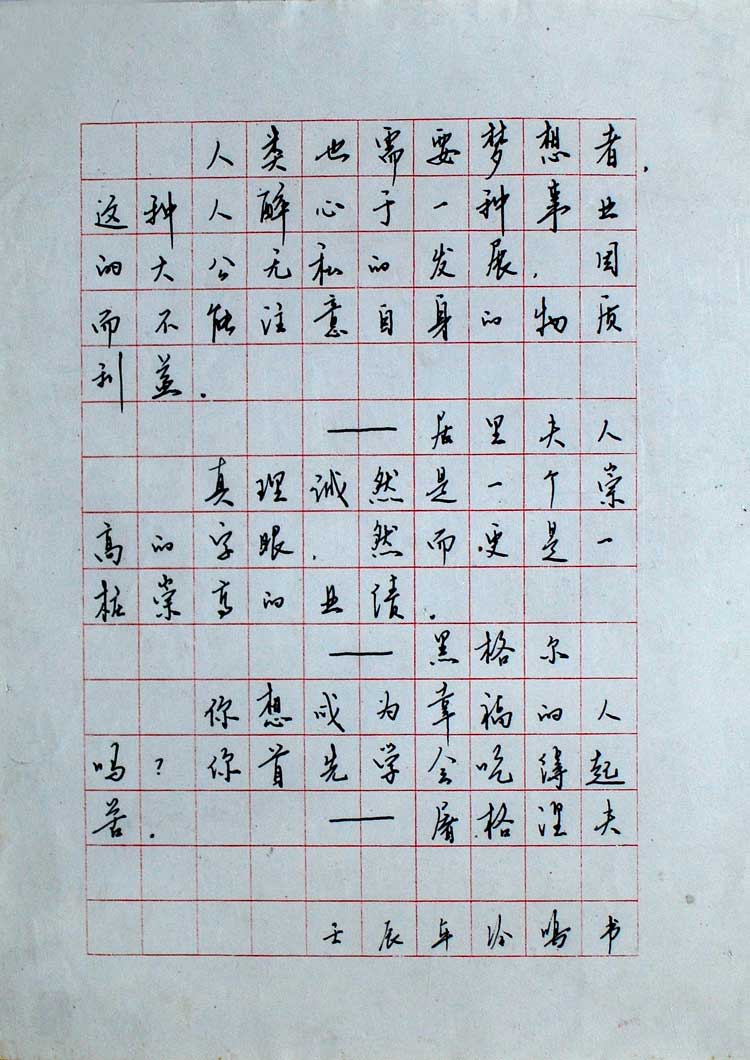 人类也需要梦想者，
这种人醉心于一种事业
的大公无私的发展，因
而不能注意自身的物质
利益。
——居里夫人
真理诚然是一个崇
高的字眼，然而更是一
桩崇高的业绩。
——黑格尔
你想成为幸福的人
吗？你首先学会吃得起
苦。——屠格涅夫
壬辰年 鸣书